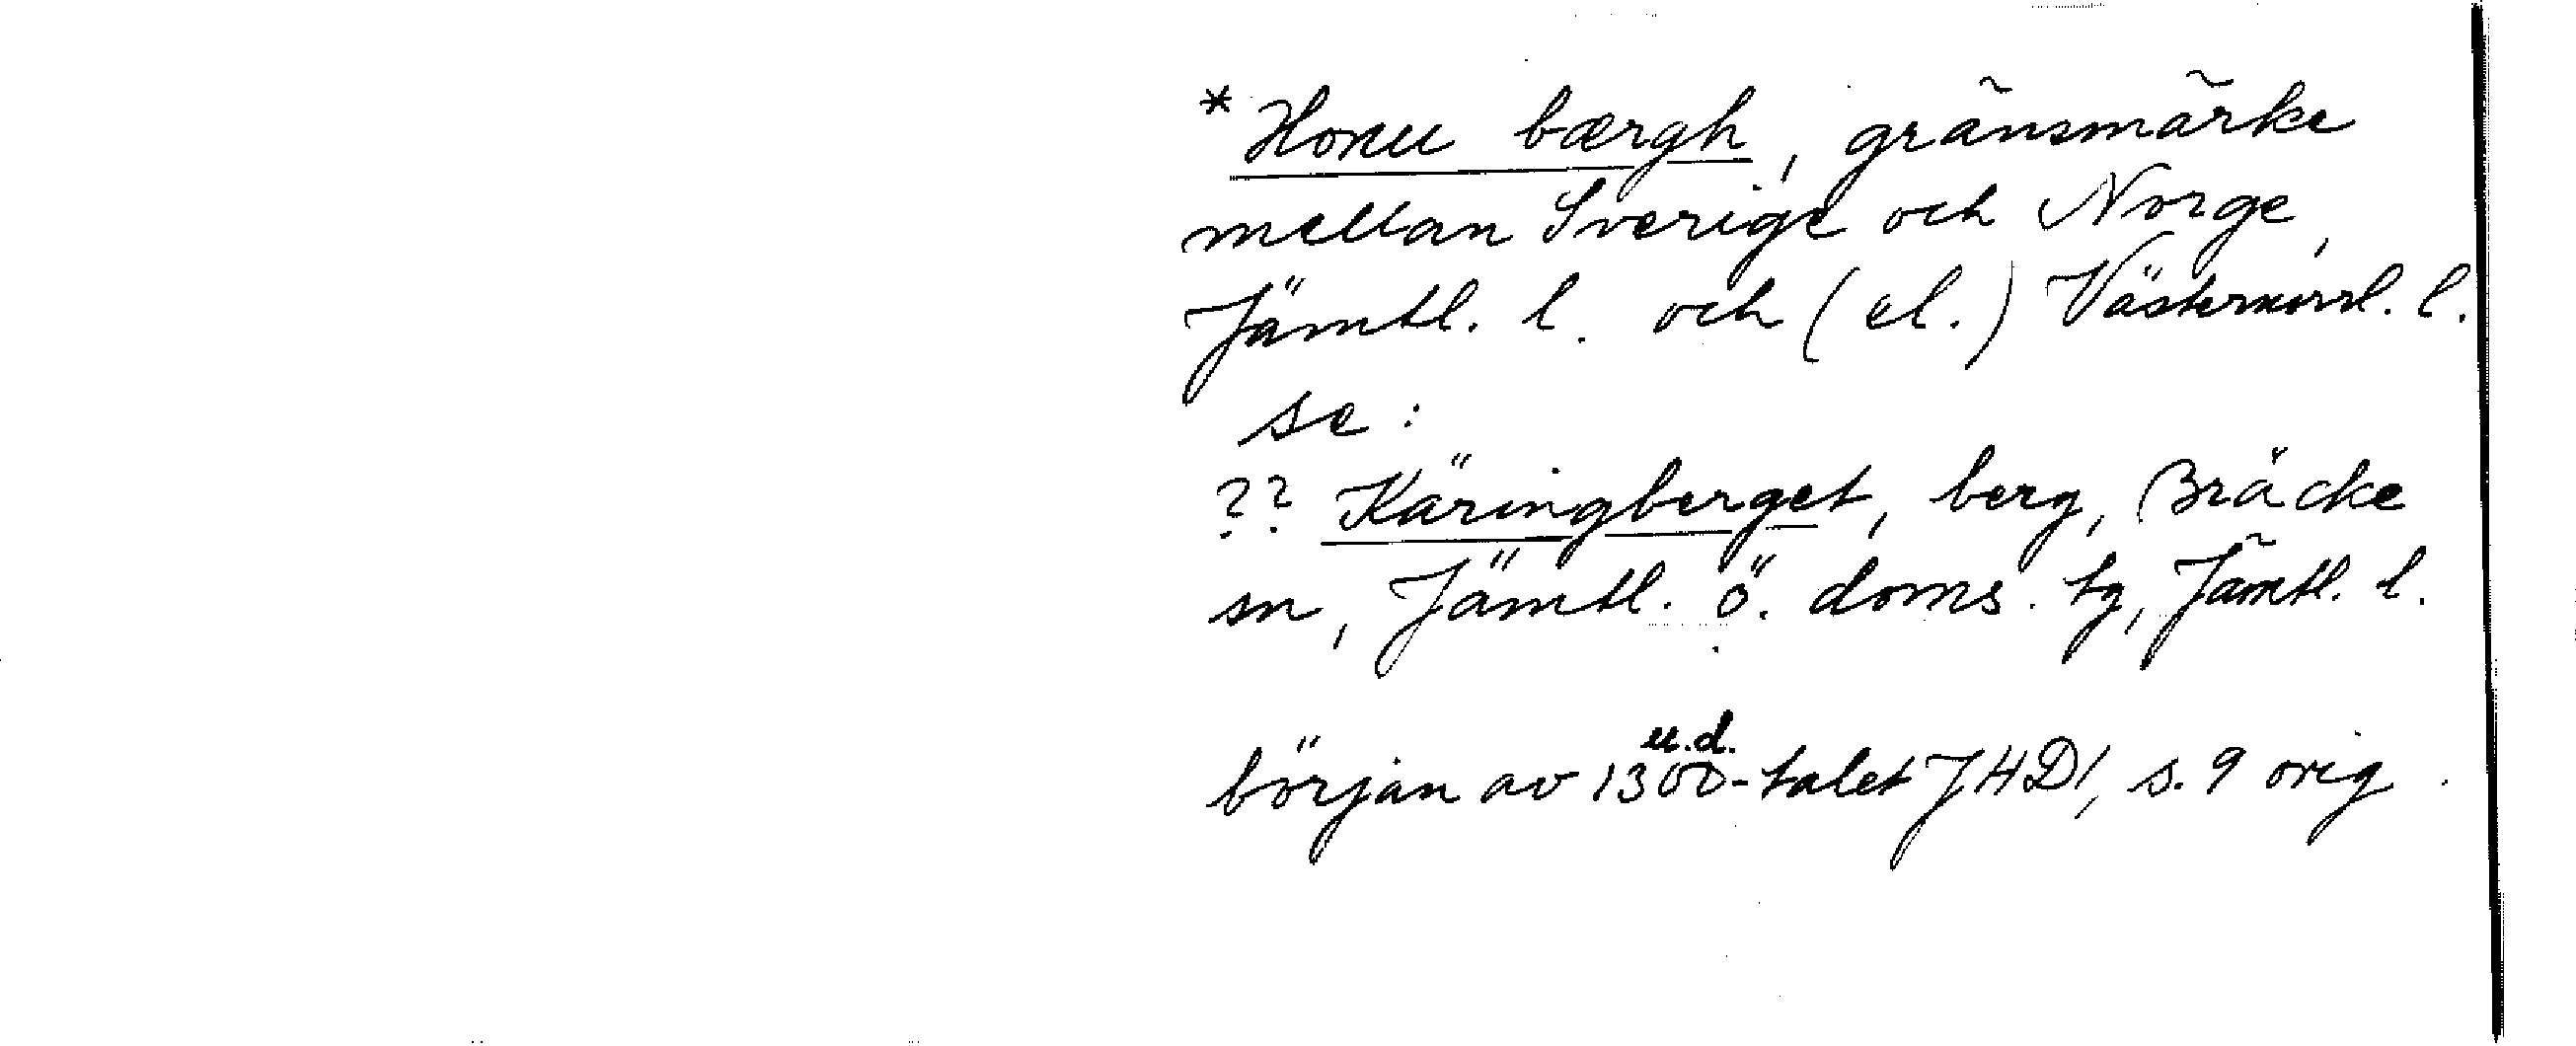 * Honu bærgh, gränsmärke
mellan Sverige och Norge,
Jämtl. l. och (el.) Västernorrl. l.
se:
?? Käringberget, berg, Bräcke
sn, Jämtl. ö. doms. tg, Jämtl. l.
u.d.
början av 1300-talet JHD1, s. 9 orig.